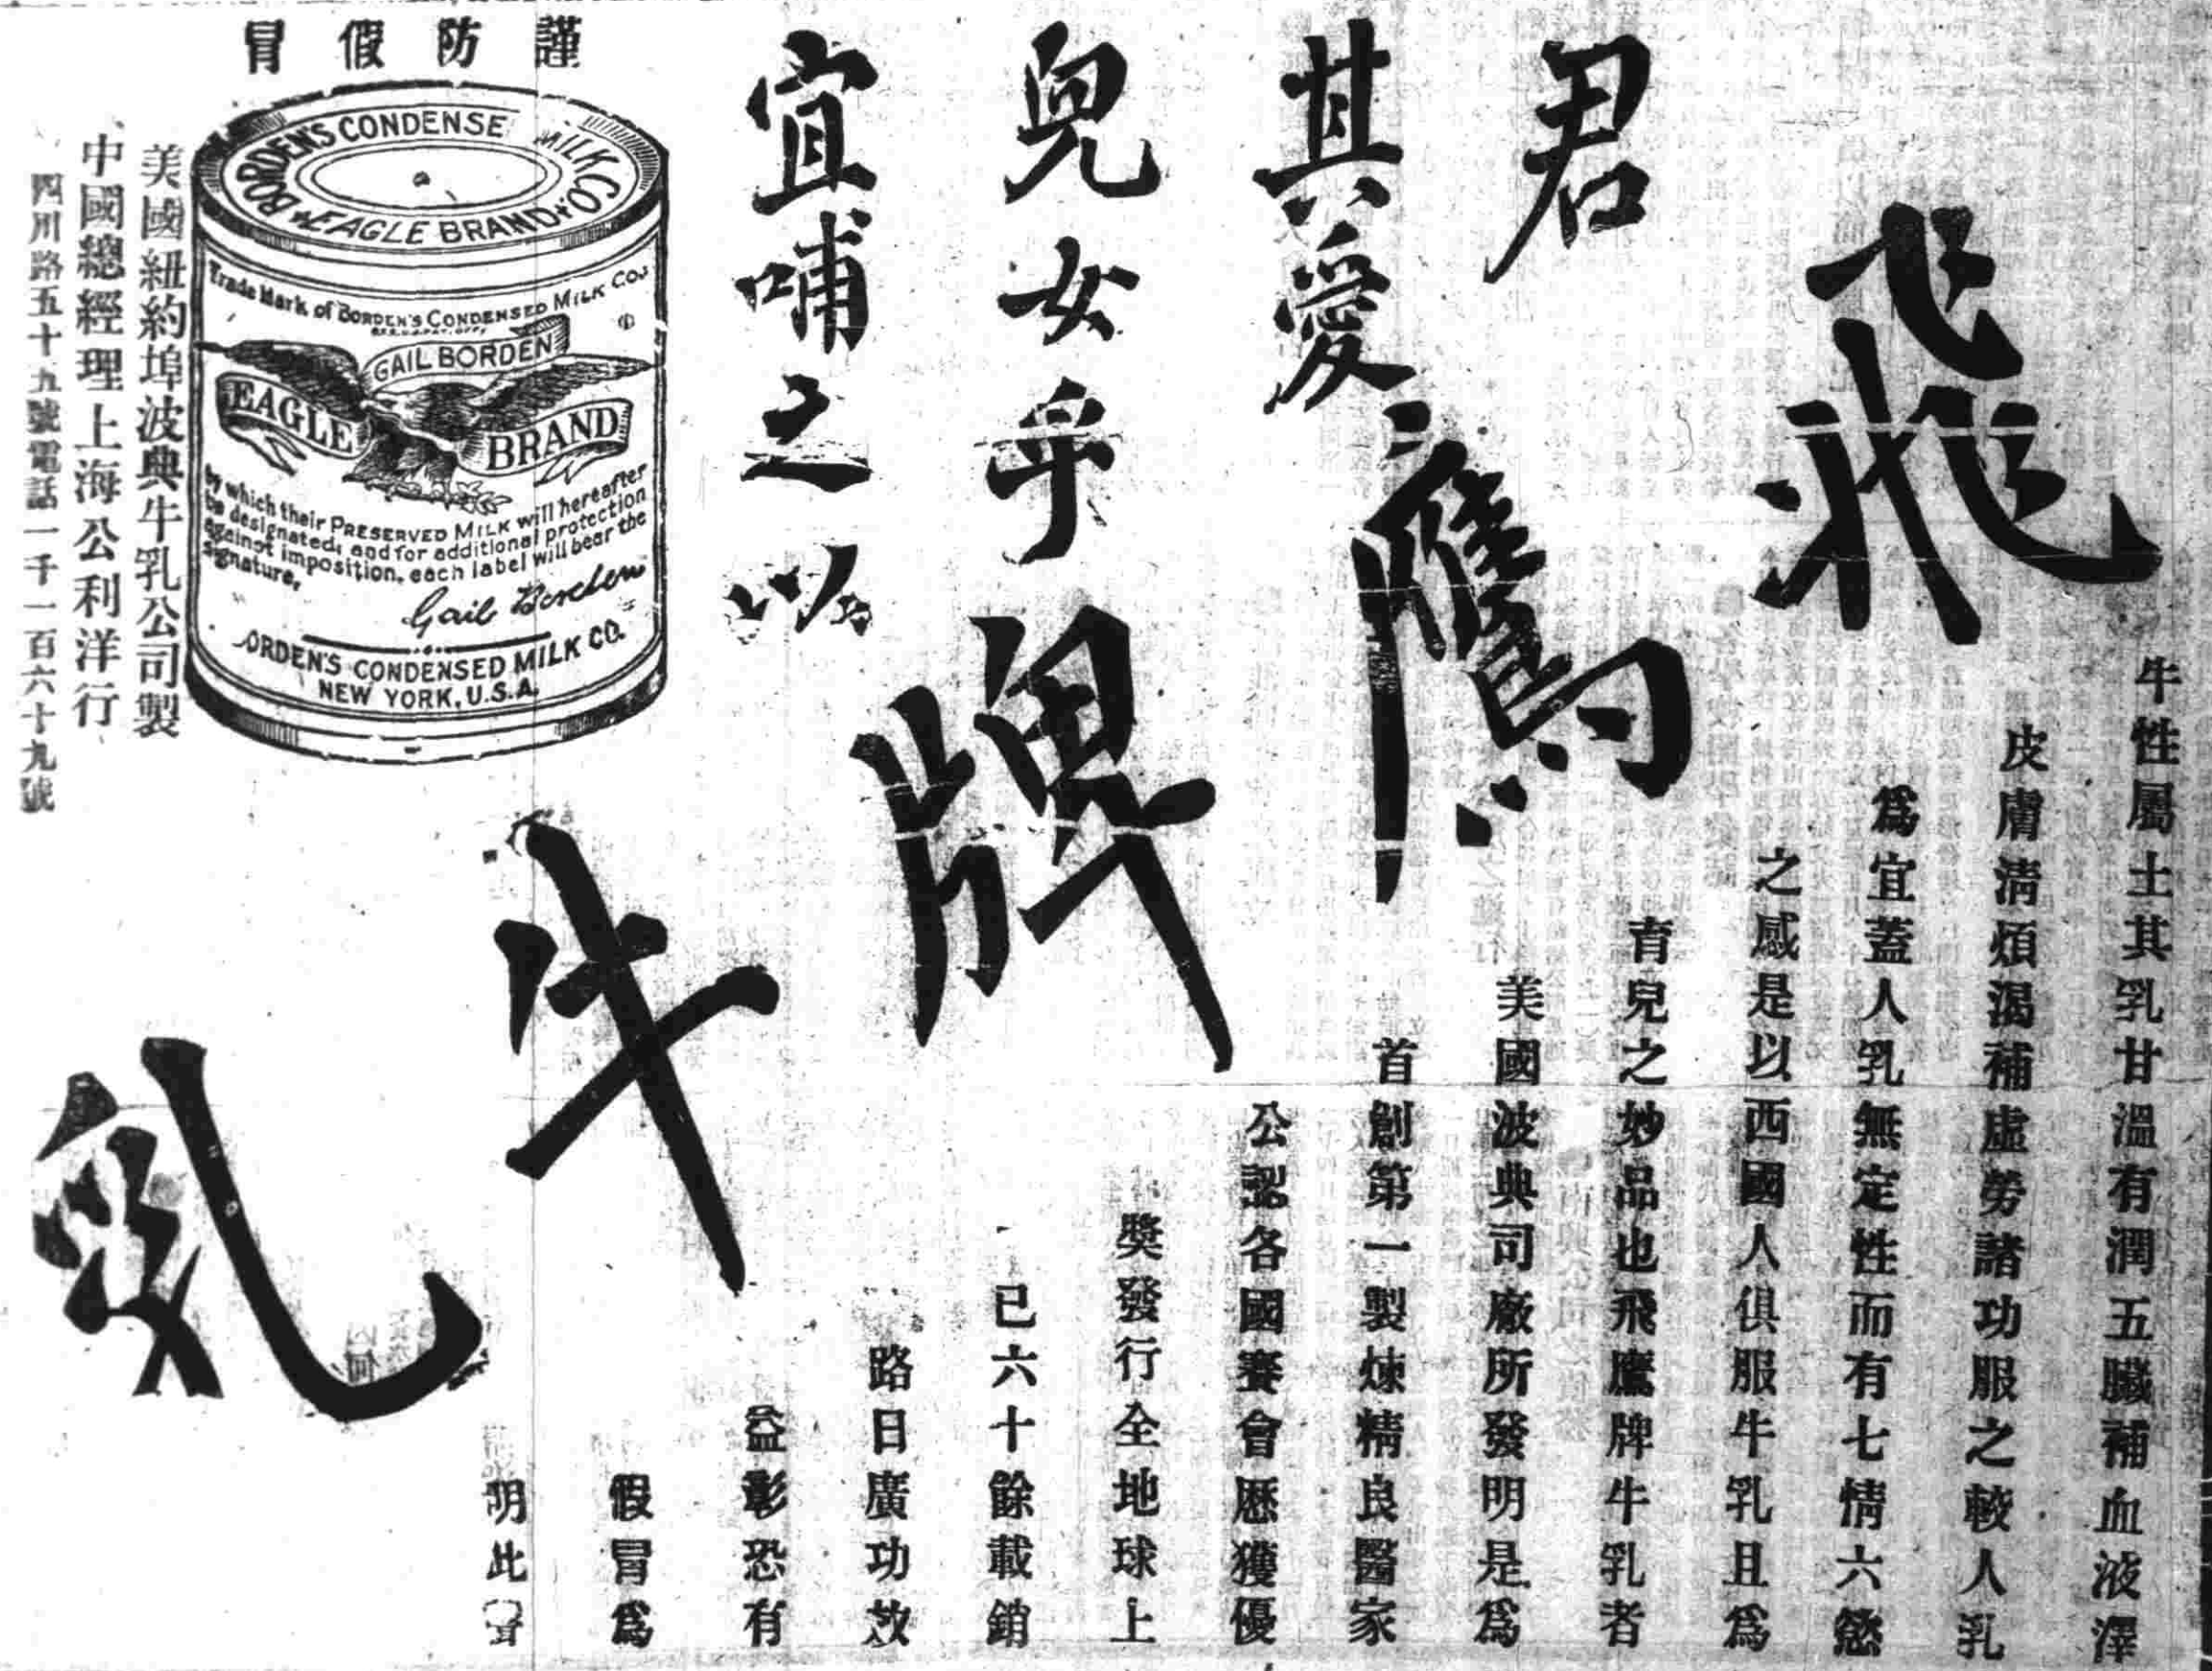 君
其愛
兒女乎
宜哺之以
飛鷹牌牛乳
牛性屬土其乳甘溫有潤五臟補血液澤
皮膚清煩渴補虛勞諸功服之較人乳
爲宜蓋人乳無定性而有七情六慾
之感是以西國人俱服牛乳且爲
育兒之妙品也飛鷹牌牛乳者
美國波典司廠所發明是爲
首創第一製煉精良醫家
公認各國賽會歷獲優
獎發行全地球上
已六十餘載銷
路日廣功效
益彰恐有
假冒爲
明此
謹防假冒
BORDEN'S CONDENSE MILK CO.
EAGLE BRAND
Trade Mark of BORDEN'S CONDENSED MILK CO.
REG. U.S. PAT. OFF.
GAIL BORDEN
EAGLE BRAND
by which their PRESERVED MILK will hereafter
be designated, and for additional protection
against imposition, each label will bear the
signature,
Gail Borden
BORDEN'S CONDENSED MILK CO.
NEW YORK, U.S.A.
美國紐約埠波典牛乳公司製
中國總經理上海公利洋行
四川路五十九號電話一千一百六十九號